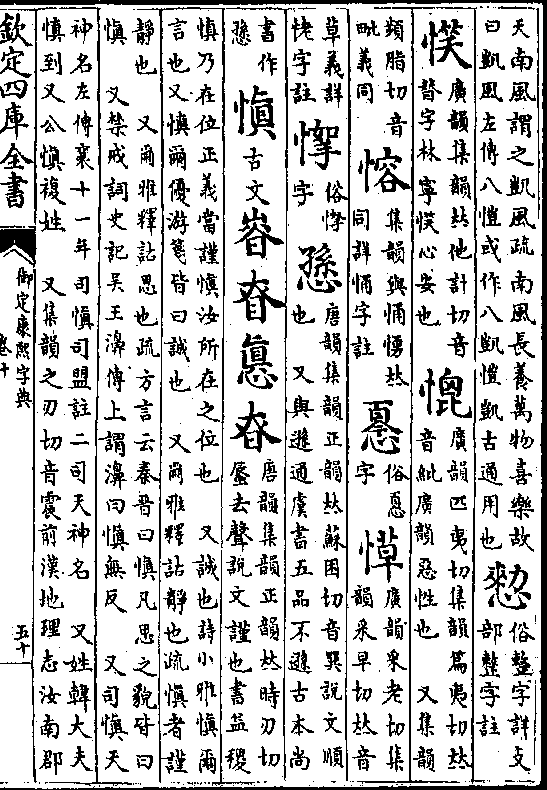 天南風謂之凱風疏南風長養萬物喜樂故
曰凱風左傳八愷或作八凱愷凱古通用也
俗整字詳攴
部整字註
廣韻集韻𠀤他計切音
替字林寧 心安也
廣韻匹夷切集韻篇夷切𠀤
音紕廣韻惡性也 又集韻
頻脂切音
毗義同
愹
集韻與悀慂𠀤
同詳悀字註
俗惪
字
愺
廣韻采老切集
韻采早切𠀤音
草義詳
恅字註
俗悖
字
愻
唐韻集韻正韻𠀤蘇困切音巽說文順
也 又與遜通虞書五品不遜古本尚
書作
愻
愼
古文
昚
唐韻集韻正韻𠀤時刃切
蜃去聲說文謹也書益稷
慎乃在位正義當謹慎汝所在之位也 又誠也詩小雅慎爾
言也又慎爾優游箋皆曰誠也 又爾雅釋詁靜也疏慎者謹
靜也 又爾雅釋詁思也疏方言云秦晉曰慎凡思之貌皆曰
慎 又禁戒詞史記吳王濞傳上謂濞曰慎無反 又司慎天
神名左傳襄十一年司慎司盟註二司天神名 又姓韓大夫
慎到又公慎複姓 又集韻之刃切音震前漢地理志汝南郡
欽定四庫全書
御定康熙字典
卷十
五十